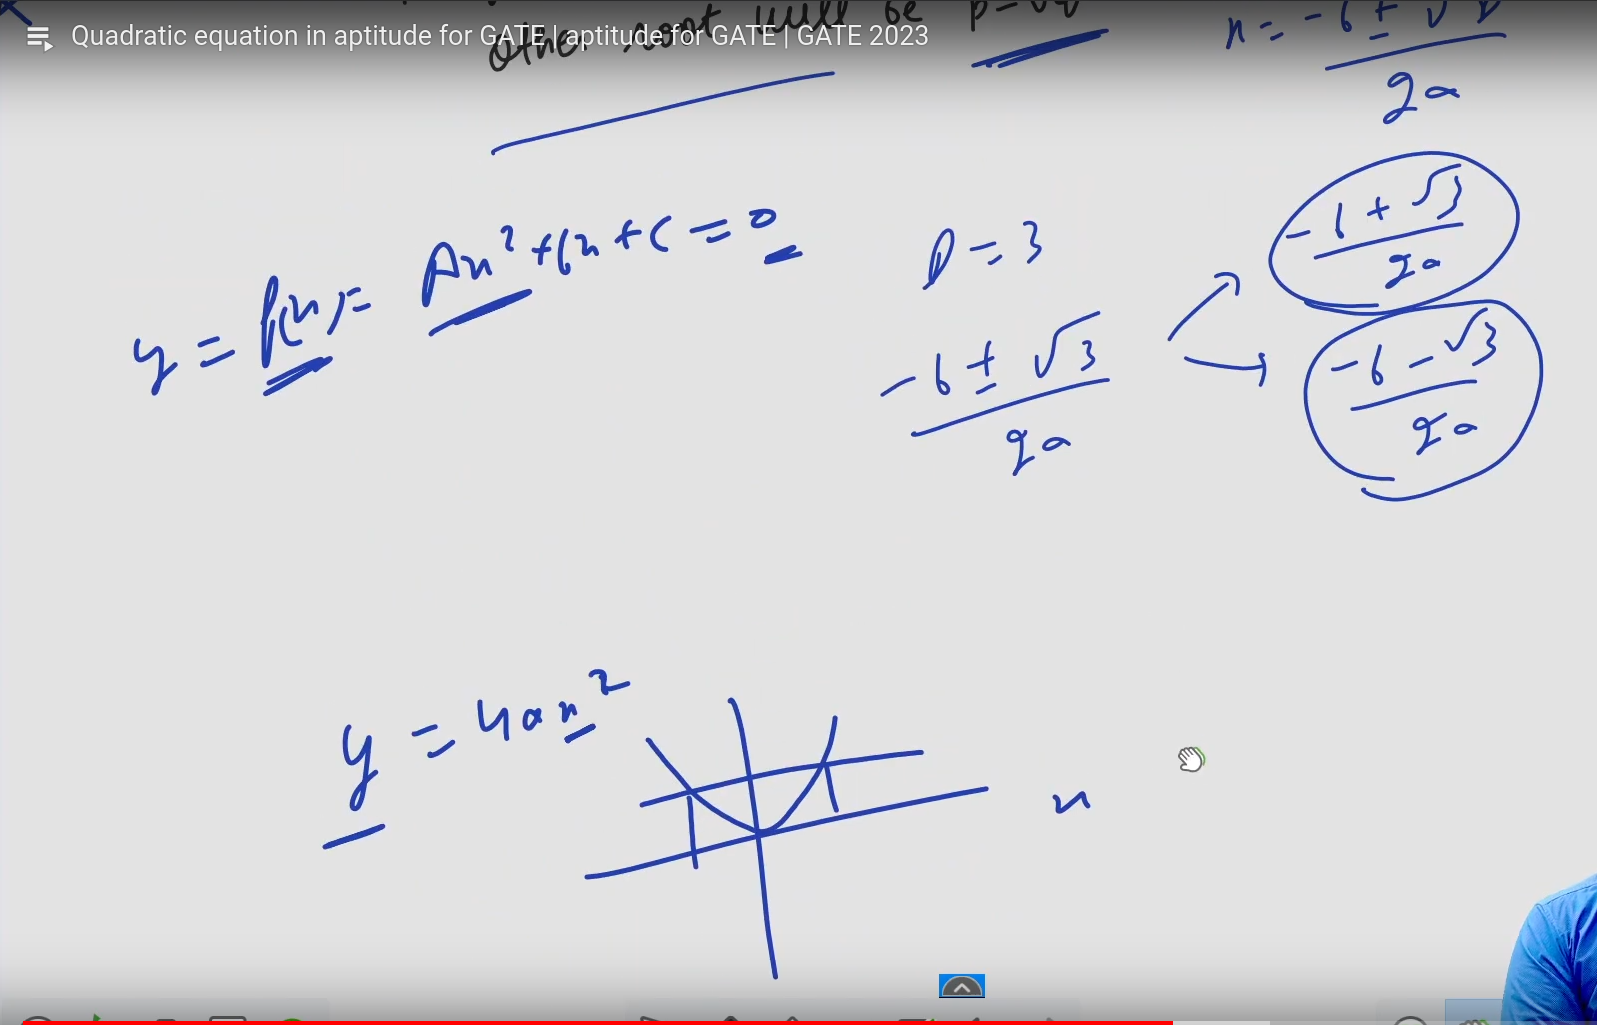 Quadratic equation in aptitude for GATE | aptitude for GATE | GATE 2023
other root will be p-√q
x = -b ± √D / 2a
y = f(x) = Ax² + bx + c = 0
D = 3
-b ± √3 / 2a
-b + √3 / 2a
-b - √3 / 2a
y = 4ax²
x